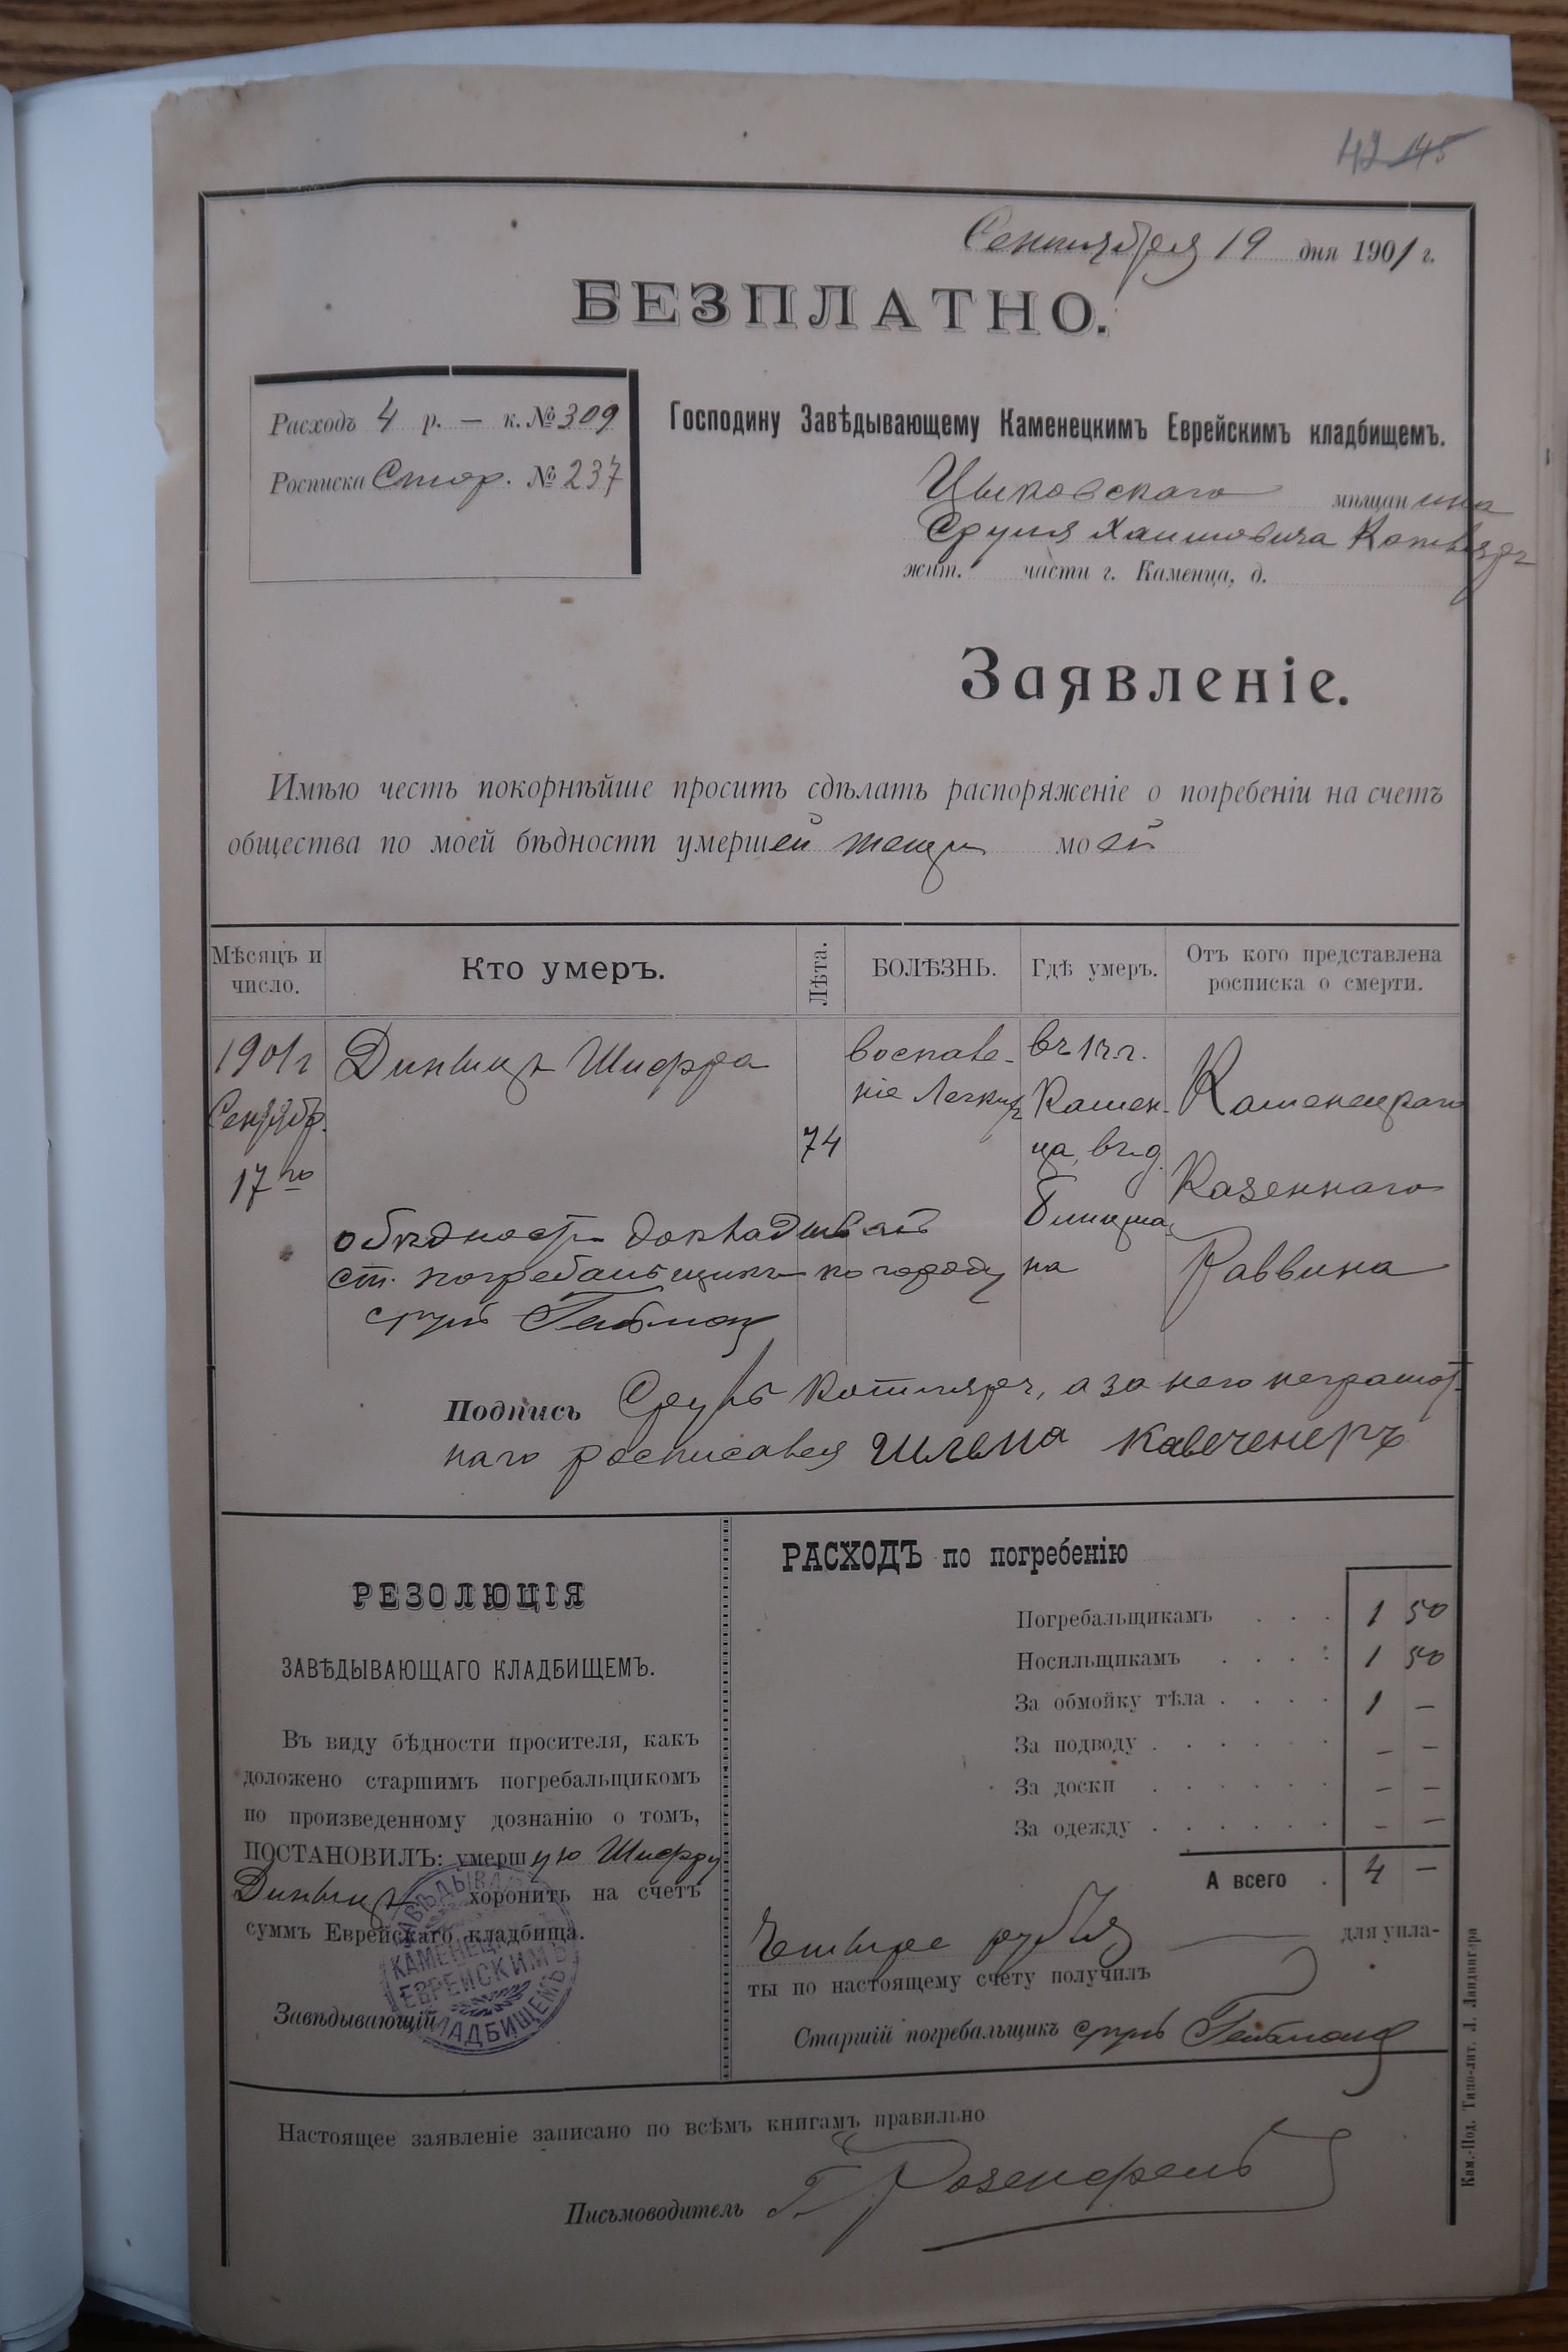 42 145
Сентября 19 дня 1901 г.
БЕЗПЛАТНО.
Расходъ 4 р. — к. № 309
Росписка Стор. № 237
Господину Завѣдывающему Каменецкимъ Еврейскимъ кладбищемъ.
мѣщанина
Сруля Хаимовича Котляръ
жит. части г. Каменца, д.
Заявленіе.
Имѣю честь покорнѣйше просить сдѣлать распоряженіе о погребеніи на счетъ
общества по моей бѣдности умершей тещи моей
Мѣсяцъ и число.
Кто умеръ.
Лѣта.
БОЛѢЗНЬ.
Гдѣ умеръ.
Отъ кого представлена росписка о смерти.
1901 г
Сентябр.
17го
Шифра
74
воспале-
ніе Легкихъ
въ 1 ч. г.
Камен-
ца, въ д.
на
Каменецкаго
Казеннаго
Раввина
о бѣдности докладывалъ
ст. погребальщикъ по городу
сруль
Подпись Сруль Котляръ, а за него неграмот-
наго росписался Шлема
РЕЗОЛЮЦІЯ
ЗАВѢДЫВАЮЩАГО КЛАДБИЩЕМЪ.
Въ виду бѣдности просителя, какъ
доложено старшимъ погребальщикомъ
по произведенному дознанію о томъ,
ПОСТАНОВИЛЪ: умершую Шифру
хоронить на счетъ
суммъ Еврейскаго кладбища.
Завѣдывающій
ЗАВѢДЫВАЮЩ
КАМЕНЕЦКИМЪ
ЕВРЕЙСКИМЪ
КЛАДБИЩЕМЪ
РАСХОДЪ по погребенію
Погребальщикамъ . . . 1 50
Носильщикамъ . . . : 1 50
За обмойку тѣла . . . . 1 —
За подводу . . . . . . — —
За доски . . . . . . — —
За одежду . . . . . . — —
А всего . 4 —
Четыре рубля — для упла-
ты по настоящему счету получилъ
Старшій погребальщикъ сруль
Настоящее заявленіе записано по всѣмъ книгамъ правильно
Письмоводитель Г. Розенфель
Кам.-Под. Типо-лит. Л. Ландвигера